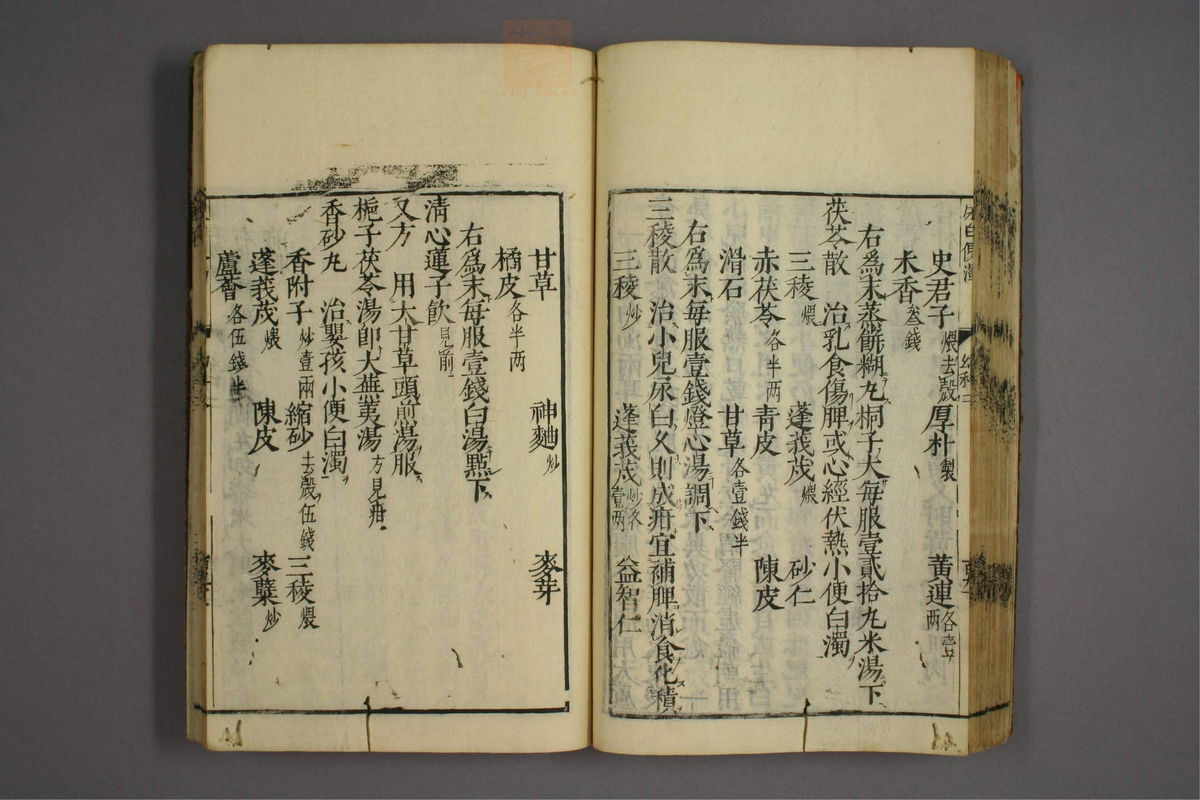 史君子煨去殼 厚朴製 黄連各壹两
木香叁錢
右爲末蒸餅糊丸桐子大毎服壹貳拾丸米湯下
茯苓散 治乳食傷脾或心經伏熱小便白濁
三稜煨 蓬莪茂煨 砂仁
赤茯苓各半两 青皮 陳皮
滑石 甘草各壹錢半
右爲末毎服壹錢燈心湯調下
三稜散 治小兒尿白久則成疳宜補脾消食化積
三稜炒 蓬莪茂炒各壹两 益智仁
甘草 神麯炒 麥芽
橘皮各半两
右爲末毎服壹錢白湯點下
清心蓮子飲見前
又方 用大甘草頭煎湯服
梔子茯苓湯即大蕪荑湯方見疳
香砂丸 治嬰孩小便白濁
香附子炒壹兩 縮砂去殼伍錢 三稜煨
蓬莪茂煨 陳皮 麥蘖炒
蘆薈各伍錢半